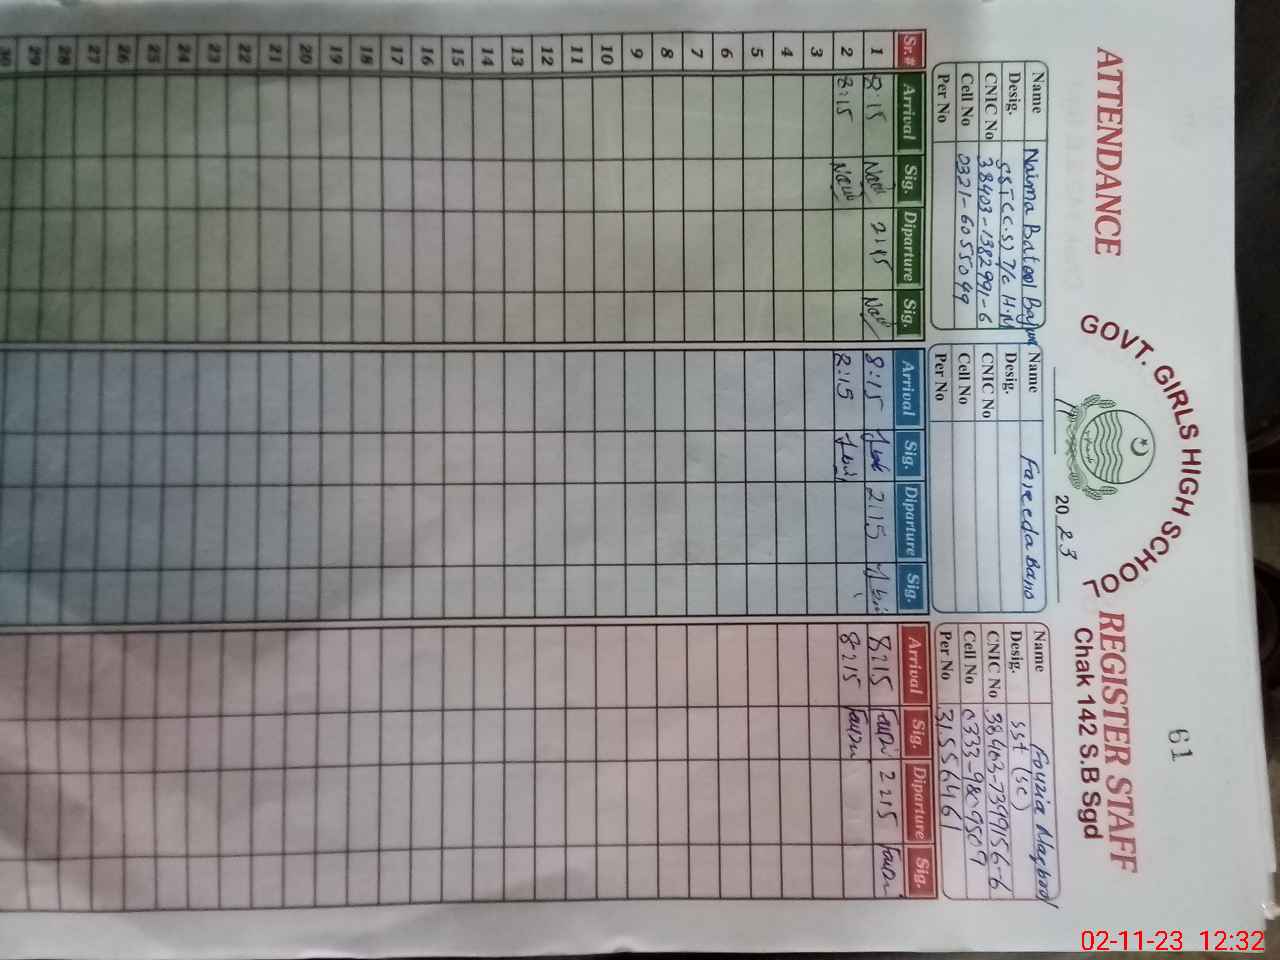 61
GOVT. GIRLS HIGH SCHOOL
ATTENDANCE REGISTER STAFF
Chak 142 S.B Sgd
11 2023
Name Naima Batool Bajwa
Desig. SST (C.S) I/C H.M
CNIC No 38403-1382991-6
Cell No 0321-6055049
Per No
Name Fareeda Bano
Desig.
CNIC No
Cell No
Per No
Name Fouzia Maqbool
Desig. SST (SC)
CNIC No 38403-7399156-6
Cell No 0333-9809509
Per No 31556461
Sr.# Arrival Sig. Diparture Sig. Arrival Sig. Diparture Sig. Arrival Sig. Diparture Sig.
1 8:15 2:15 8:15 2:15 8:15 2:15
2 8:15 8:15 8:15
3
4
5
6
7
8
9
10
11
12
13
14
15
16
17
18
19
20
21
22
23
24
25
26
27
28
29
30
02-11-23 12:32